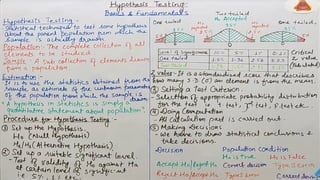 Hypothesis Testing
Basics & Fundamentals
Hypothesis Testing -
Statistical technique to test some hypothesis
about the parent population from which the
sample is actually drawn.
Population - The complete collection of all
elements to be studied.
Sample - A sub collection of elements drawn
from a population
Estimation
It is to use the statistics obtained from the
sample as estimate of the unknown parameter
of the population from which the sample is
drawn.
A hypothesis in statistics is simply a
quantitative statement about population".
Procedure for Hypothesis Testing -
① Set up the Hypothesis.
Ho (Null Hypothesis)
Ha/H1 (Alternative Hypothesis)
② Set up a suitable significant level.
Test of validity of Ho against Ha
at certain level of significant
One tailed
Ho Accepted
95%
One tailed
Critical
Z value
Z value - It is a standardised score that describes
how many S.D (σ) an element is from the mean.
③ Setting a Test Criterion
Selection of appropriate probability distribution
for the test t test, F test etc.
④ Doing Computation
All calculation part is carried out.
⑤ Making Decisions
We have to draw statistical conclusions &
take decisions.
Decision
Population Condition
Ho is True
Ho is False
Accept Ho/Reject Ha
Correct decision
Type II Error
Reject Ho/Accept Ha
Type I Error
Correct decision